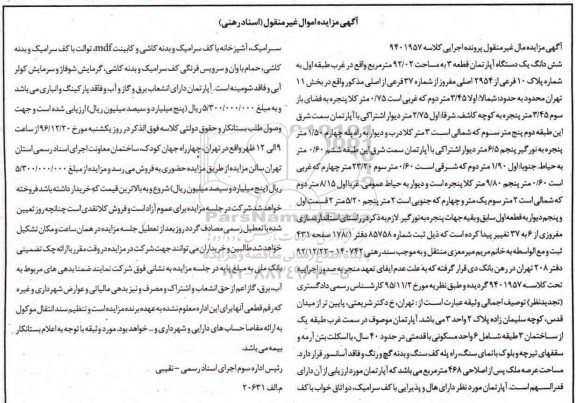 آگهی مزایده اموال غیر منقول (اسناد رهنی)
آگهی مزایده مال غیر منقول پرونده اجرایی کلاسه ۹۴۰۱۹۵۷
شش دانگ یک دستگاه آپارتمان قطعه ۳ به مساحت ۹۲/۰۲ مترمربع واقع در غرب طبقه اول به
شماره پلاک ۱۰ فرعی از ۲۹۵۴ اصلی مفروز از شماره ۳۷ فرعی از اصلی مذکور واقع در بخش ۱۱
تهران محدود به حدود: شمالا: اولا ۳/۴۵ متر دوم که غربی است ۰/۷۵ متر کلا پنجره به فضای باز
سوم ۳/۴۵ متر پنجره به کوچه کاشف شرقا: اول ۲/۷۵ متر دیوار اشتراکی با آپارتمان سمت شرق
این طبقه دوم پنج متر سوم که شمالی است ۳ متر کلا درب و دیوار به راه پله چهارم ۱/۵۰ متر
پنجره به نورگیر پنجم ۶/۵ متر دیوار اشتراکی با آپارتمان سمت شرق این طبقه ششم ۰/۶۰ متر
به حیاط، جنوبا: اول ۱/۹۰ متر دوم که شرقی است ۰/۶۰ متر سوم ۲۳/۴۰ متر چهارم که غربی
است ۰/۶۰ متر پنجم ۹/۸۰ متر کلا پنجره است و دیوار به حیاط عمومی غربا: اول ۸/۱۵ متر دوم
که شمالی است ۲ متر سوم یک متر و چهارم که جنوبی است ۲ متر پنجم ۵/۲۰ متر ۲ قسمت اول
و پنجم دیوار به قطعه اول سابق و بقیه جهات پنجره به نورگیر. لازم به ذکر در راستای استاندارد سازی
مفروزی ۶ به ۳۷ تغییر پیدا کرده است که ذیل ثبت شماره ۸۵۷۵۸ دفتر ۱۷۸/۱ صفحه ۴۳۱
ثبت و مع الواسطه به خانم مریم میرمعزی منتقل و به موجب سند رهنی ۱۴۰۷۴۲ - ۹۲/۱۲/۱۲
دفتر ۲۰۸ تهران در رهن بانک دی قرار گرفته که به علت عدم ایفای تعهد منجر به صدور اجرائیه
تحت کلاسه ۹۴۰۱۹۵۷ گردیده و طبق نظریه مورخ ۹۵/۱۱/۲ کارشناس رسمی دادگستری
(تجدیدنظر) توصیف اجمالی وثیقه عبارت است از: تهران، خ دکتر شریعتی، پایین تر از میدان
قدس، کوچه سلیمان زاده پلاک ۲ واحد ۳ می باشد. آپارتمان موصوف در سمت غرب طبقه یک
از ساختمان ۳ طبقه شامل ۶ واحد مسکونی با قدمتی در حدود ۴۰ سال، با اسکلت بتن آرمه و
سقفهای تیرچه و بلوک با نمای سنگ، راه پله کف سنگ و بدنه گچ و رنگ و فاقد آسانسور قرار دارد.
مساحت عرصه ملک پس از اصلاحی ۴۶۸ مترمربع می باشد که آپارتمان مورد ارزیابی از آن دارای
قدرالسهم است. آپارتمان مورد نظر دارای هال و پذیرایی با کف سرامیک، دو اتاق خواب با کف
سرامیک، آشپزخانه با کف سرامیک و بدنه کاشی و کابینت mdf، توالت با کف سرامیک و بدنه
کاشی، حمام با وان و سرویس فرنگی کف سرامیک و بدنه کاشی، گرمایش شوفاژ و سرمایش کولر
آبی و فاقد شومینه است. آپارتمان دارای انشعاب برق و گاز و آب و فاقد پارکینگ و انباری می باشد
و به مبلغ ۵/۳۰۰/۰۰۰/۰۰۰ ریال (پنج میلیارد و سیصد میلیون ریال) ارزیابی شده است و جهت
وصول طلب بستانکار و حقوق دولتی کلاسه فوق الذکر در روز یکشنبه مورخ ۹۶/۱۲/۲۰ از ساعت
۹ الی ۱۲ ظهر واقع در تهران، چهارراه جهان کودک، ساختمان معاونت اجرای اسناد رسمی استان
تهران سالن مزایده از طریق مزایده حضوری به فروش می رسد و مزایده از مبلغ ۵/۳۰۰/۰۰۰/۰۰۰
ریال (پنج میلیارد و سیصد میلیون ریال) شروع و به بالاترین قیمت که خریدار داشته باشد فروخته
خواهد شد. شرکت در جلسه مزایده برای عموم آزاد است و فروش کلا نقدی است چنانچه روز تعیین
شده با تعطیل رسمی مصادف گردد روز بعد از تعطیل جلسه مزایده در همان ساعت و مکان تشکیل
خواهد شد طالبین و خریداران می توانند جهت شرکت در مزایده در وقت مقرر با ارائه چک تضمینی
بانک ملی به مبلغ پایه در جلسه مزایده به نشانی فوق شرکت نمایند ضمنا بدهی های مربوط به
آب، برق، گاز اعم از حق انشعاب و اشتراک و مصرف و نیز بدهی مالیاتی و عوارض شهرداری و غیره
که رقم قطعی آنها برای این اداره معلوم نشده به عهده برنده مزایده است و تنظیم سند انتقال موکول
به ارائه مفاصا حساب های دارایی و شهرداری و ... خواهد بود. مورد وثیقه با توجه به اعلام بستانکار
بیمه می باشد.
رئیس اداره سوم اجرای اسناد رسمی - نقیبی
م الف ۲۰۶۳۱